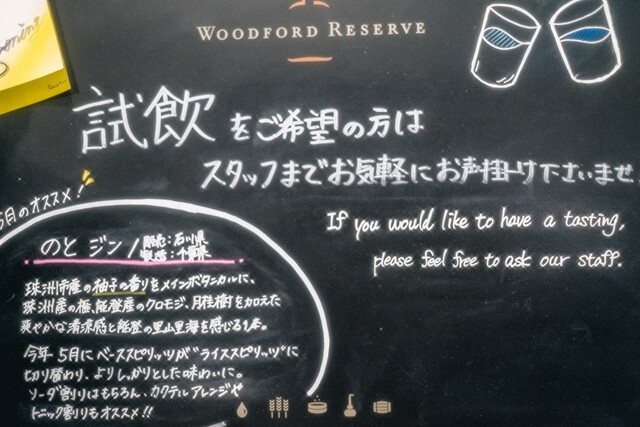 WOODFORD RESERVE
試飲をご希望の方は
スタッフまでお気軽にお声掛け下さいませ
If you would like to have a tasting,
please feel free to ask our staff.
5月のオススメ!
のと ジン/
販売:石川県
製造:千葉県
珠洲市産の柚子の香りをメインボタニカルに、
珠洲産の榧、能登産のクロモジ、月桂樹を加えた
爽やかな清涼感と能登の里山里海を感じる1本。
今年5月にベーススピリッツが"ライススピリッツ"に
切り替わり、よりしっかりとした味わいに。
ソーダ割りはもちろん、カクテルアレンジや
トニック割りもオススメ!!